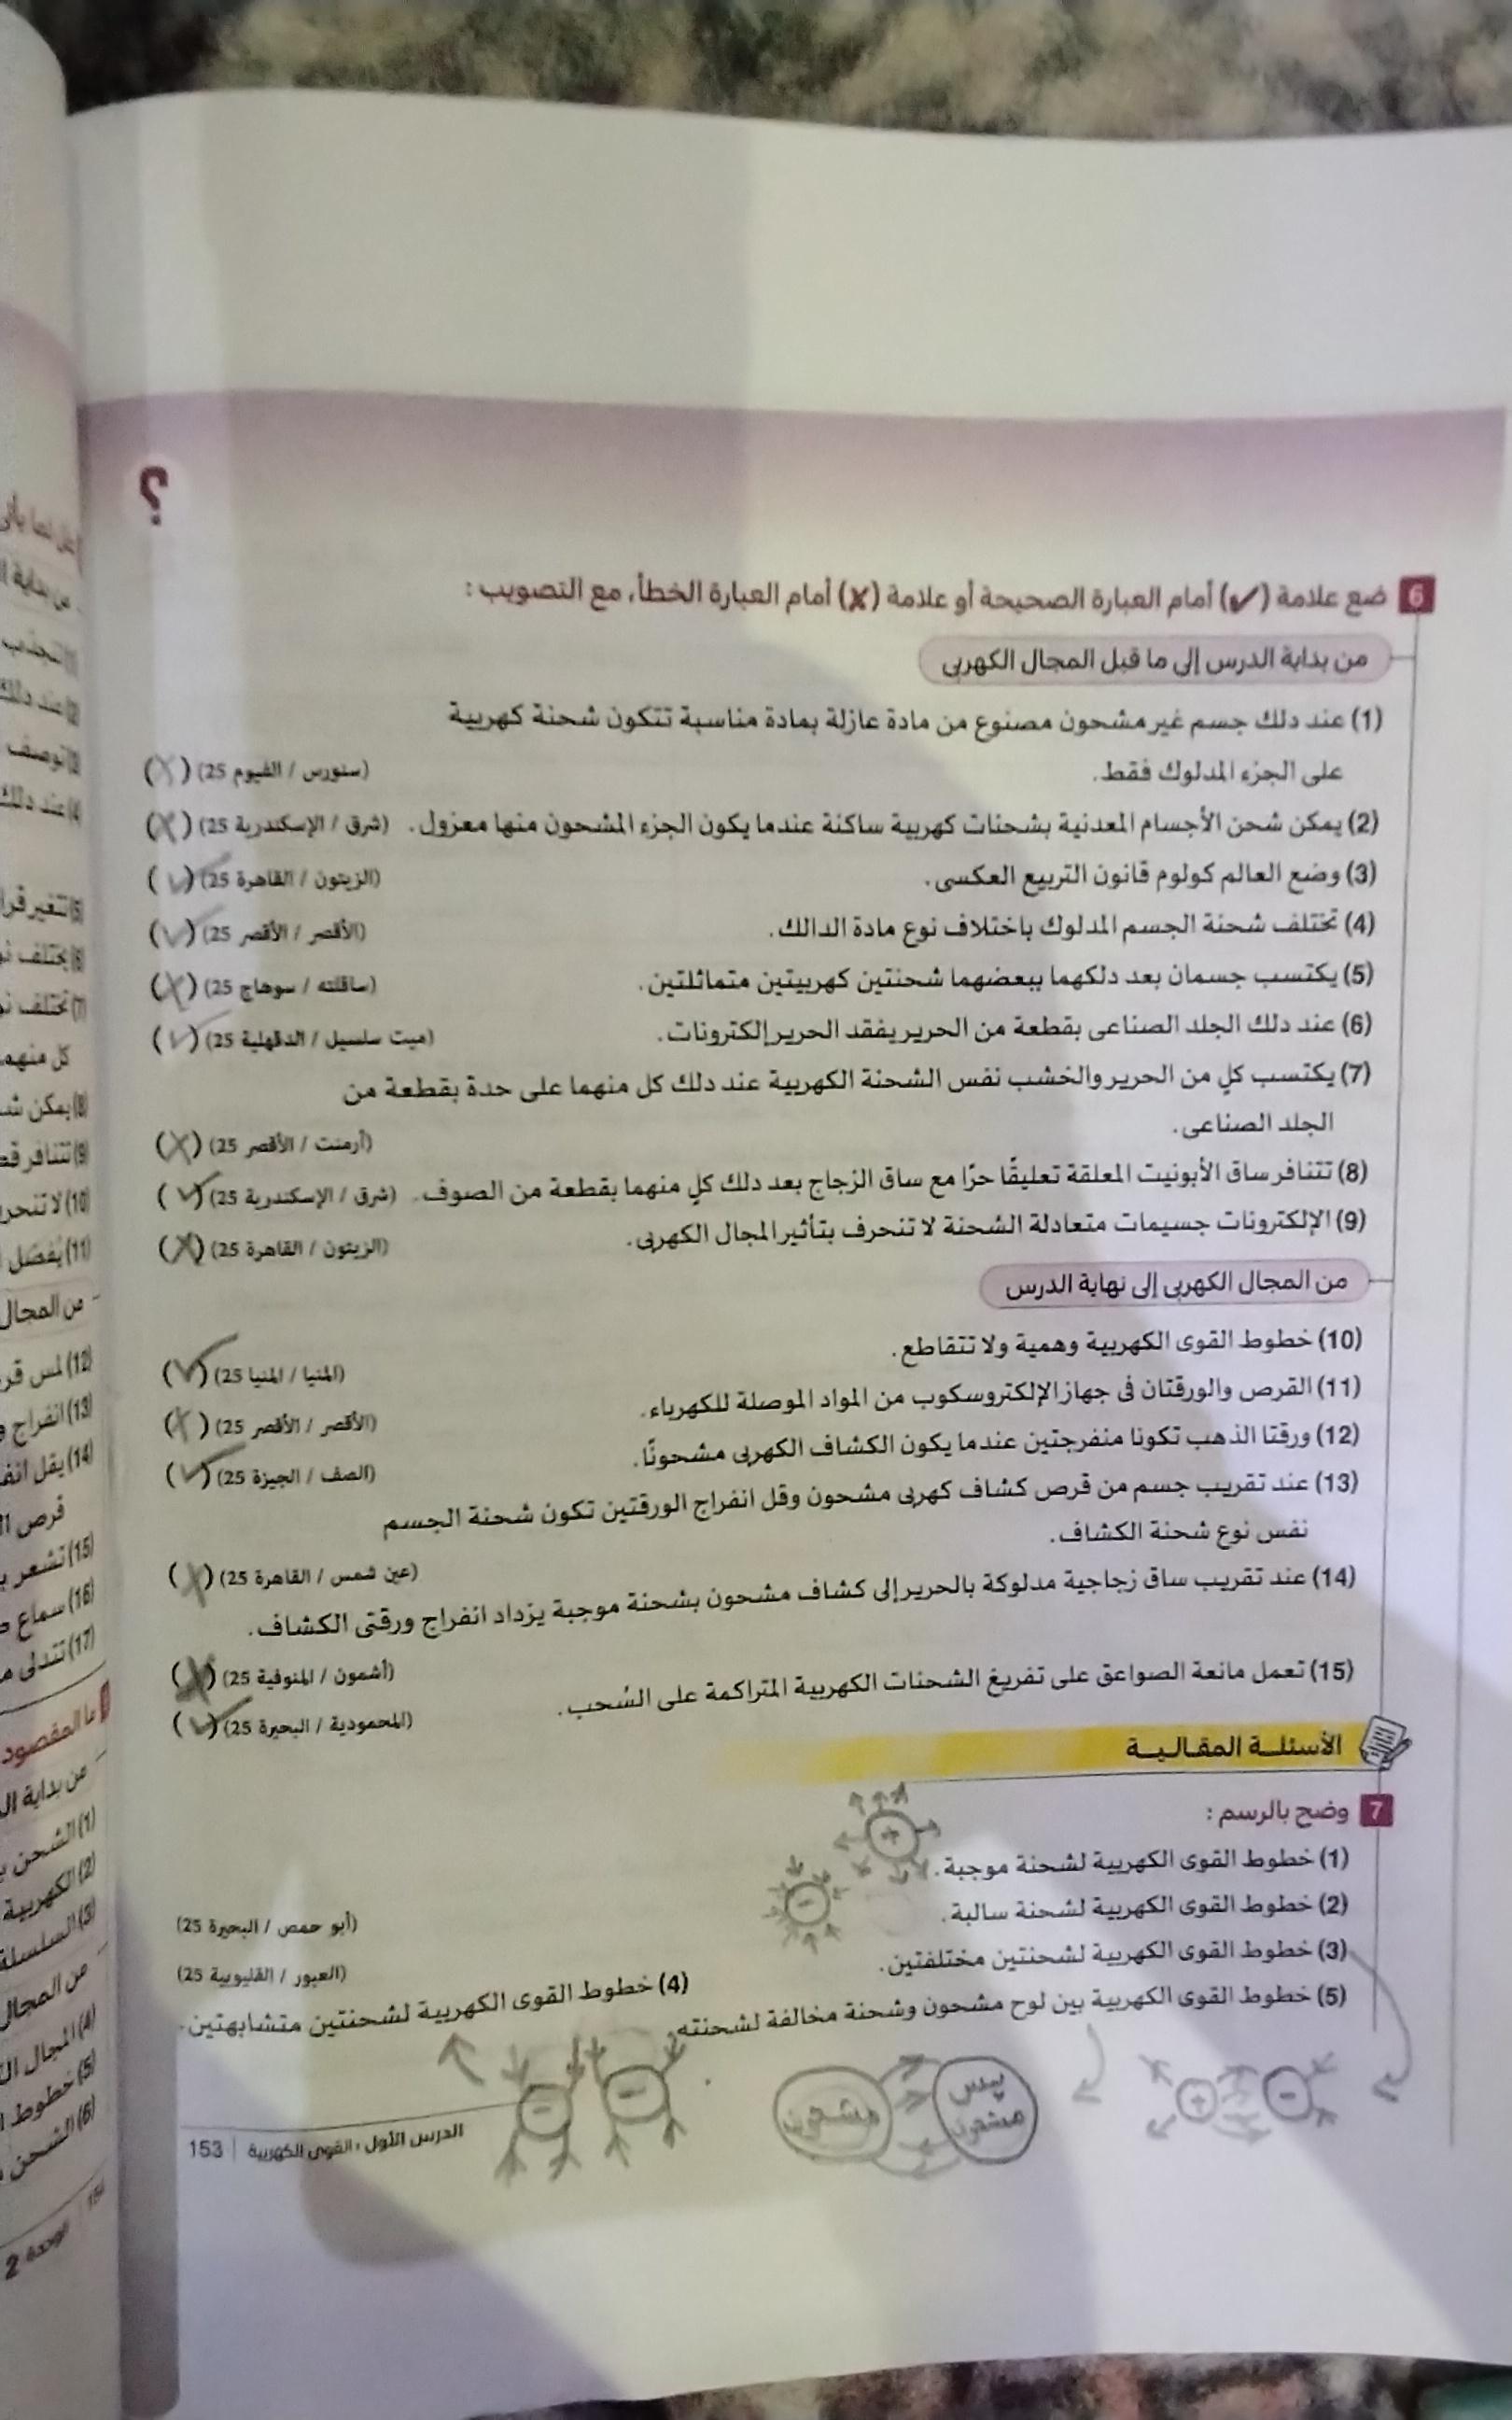 ؟
6 ضع علامة (✓) أمام العبارة الصحيحة أو علامة (✗) أمام العبارة الخطأ، مع التصويب :
من بداية الدرس إلى ما قبل المجال الكهربى
(1) عند دلك جسم غير مشحون مصنوع من مادة عازلة بمادة مناسبة تتكون شحنة كهربية
على الجزء المدلوك فقط. (سنورس / الفيوم 25) (✗)
(2) يمكن شحن الأجسام المعدنية بشحنات كهربية ساكنة عندما يكون الجزء المشحون منها معزول. (شرق / الإسكندرية 25) (✗)
(3) وضع العالم كولوم قانون التربيع العكسى. (الزيتون / القاهرة 25) (✓)
(4) تختلف شحنة الجسم المدلوك باختلاف نوع مادة الدالك. (الأقصر / الأقصر 25) (✓)
(5) يكتسب جسمان بعد دلكهما ببعضهما شحنتين كهربيتين متماثلتين. (ساقلته / سوهاج 25) (✗)
(6) عند دلك الجلد الصناعى بقطعة من الحرير يفقد الحرير إلكترونات. (ميت سلسيل / الدقهلية 25) (✓)
(7) يكتسب كل من الحرير والخشب نفس الشحنة الكهربية عند دلك كل منهما على حدة بقطعة من
الجلد الصناعى. (أرمنت / الأقصر 25) (✗)
(8) تتنافر ساق الأبونيت المعلقة تعليقًا حرًا مع ساق الزجاج بعد دلك كل منهما بقطعة من الصوف. (شرق / الإسكندرية 25) (✓)
(9) الإلكترونات جسيمات متعادلة الشحنة لا تنحرف بتأثير المجال الكهربى. (الزيتون / القاهرة 25) (✗)
من المجال الكهربى إلى نهاية الدرس
(10) خطوط القوى الكهربية وهمية ولا تتقاطع. (المنيا / المنيا 25) (✓)
(11) القرص والورقتان فى جهاز الإلكتروسكوب من المواد الموصلة للكهرباء. (الأقصر / الأقصر 25) (✗)
(12) ورقتا الذهب تكونا منفرجتين عندما يكون الكشاف الكهربى مشحونًا. (الصف / الجيزة 25) (✓)
(13) عند تقريب جسم من قرص كشاف كهربى مشحون وقل انفراج الورقتين تكون شحنة الجسم
نفس نوع شحنة الكشاف. (عين شمس / القاهرة 25) (✗)
(14) عند تقريب ساق زجاجية مدلوكة بالحرير إلى كشاف مشحون بشحنة موجبة يزداد انفراج ورقتى الكشاف.
(أشمون / المنوفية 25) (✗)
(15) تعمل مانعة الصواعق على تفريغ الشحنات الكهربية المتراكمة على السُحب. (المحمودية / البحيرة 25) (✓)
الأسئلة المقالية
7 وضح بالرسم :
+
(1) خطوط القوى الكهربية لشحنة موجبة.
-
(2) خطوط القوى الكهربية لشحنة سالبة. (أبو حمص / البحيرة 25)
(3) خطوط القوى الكهربية لشحنتين مختلفتين. (العبور / القليوبية 25)
(4) خطوط القوى الكهربية لشحنتين متشابهتين.
(5) خطوط القوى الكهربية بين لوح مشحون وشحنة مخالفة لشحنته.
+ -
مشحون
مشحون
- -
الدرس الأول : القوى الكهربية | 153